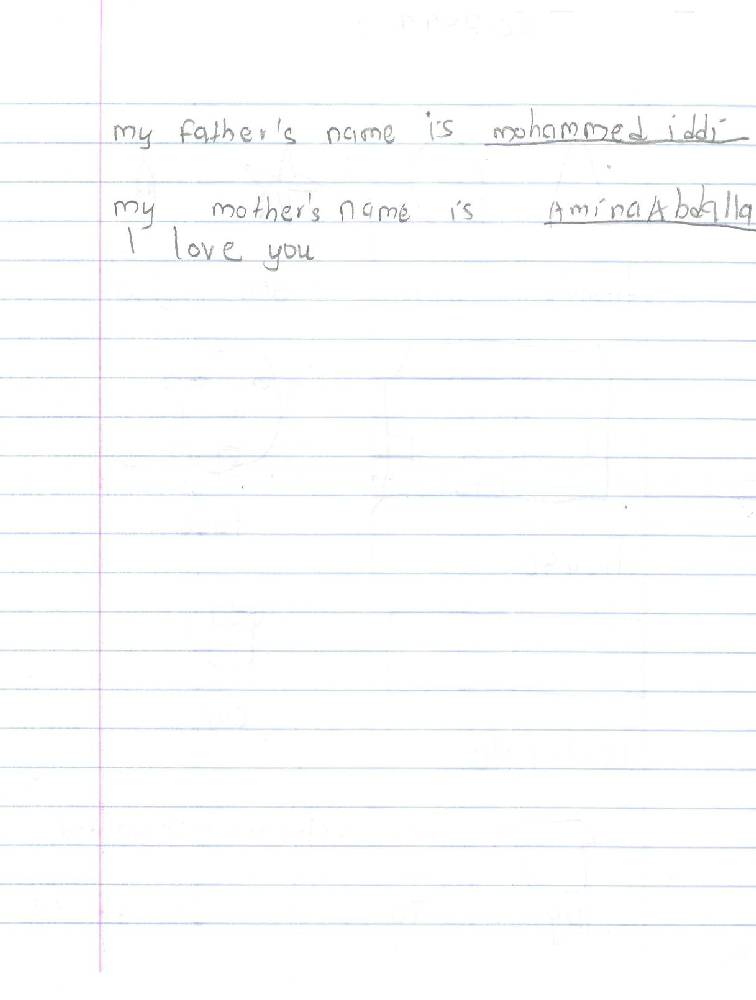 my father's name is mohammed iddi
my mother's name is Amina Abdalla
I love you